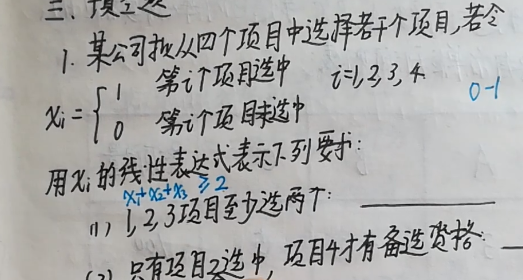 三、填空题
1. 某公司拟从四个项目中选择若干个项目,若令
xi = { 1 第i个项目选中 i=1,2,3,4.
0 第i个项目未选中
0-1
用xi的线性表达式表示下列要求:
x1+x2+x3 ≥ 2
(1) 1,2,3项目至少选两个:
(2) 只有项目2选中,项目4才有备选资格: